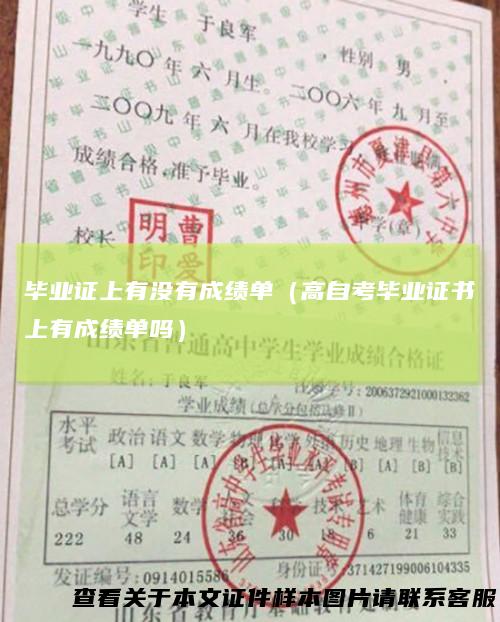 学生 于良军 ，性别 男 ，
一九九〇 年 六 月生。 二〇〇六 年 九 月至
二〇〇九 年 六 月在我校学习
成绩合格,准予毕业。
德州市夏津县第六中学
校长
学(章)
曹爱明印
毕业证上有没有成绩单（高自考毕业证书
上有成绩单吗）
山东省普通高中学生学业成绩合格证
姓名:于良军
号: 2006372921000132362
学业成绩(总学分包括选修Ⅱ)
水平考试 政治 语文 数学 物理 化学 外语 历史 地理 生物 信息技术
[A] [A] [A] [B] [A] [B] [B]
总学分 语言文学 数学 技术 艺术 体育健康 综合实践
222 48 24 36 30 18 6 21 33
山东省高中学生学业水平考试专用章
发证编号:0914015586 身份证号:371427199006104335
查看关于本文证件样本图片请联系客服
山东省教育厅基础教育